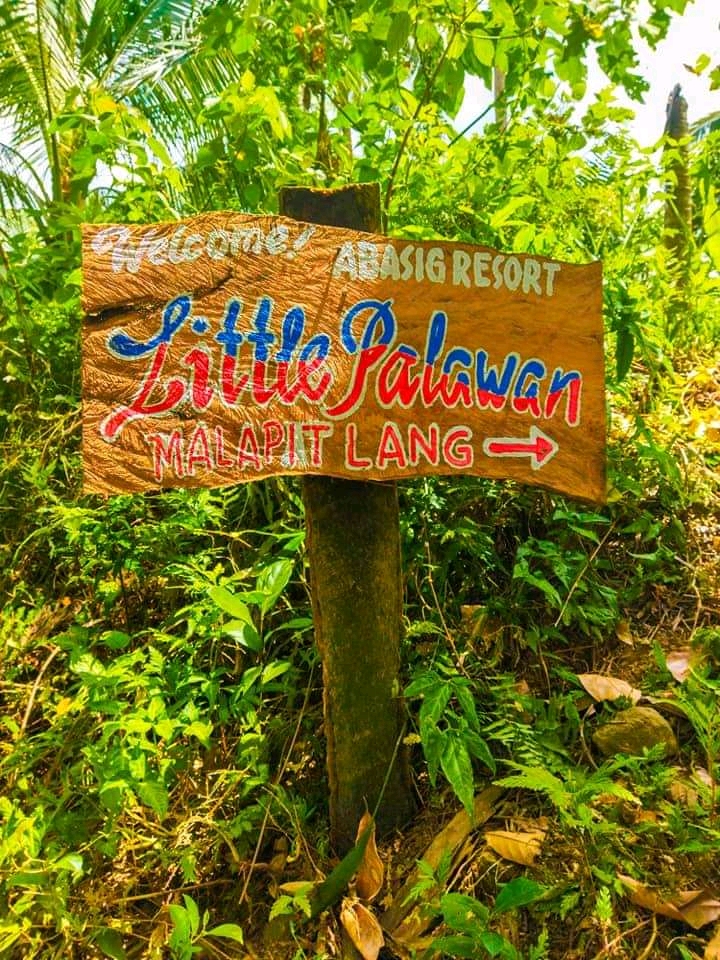 Welcome! ABASIG RESORT
Little Palawan
MALAPIT LANG →